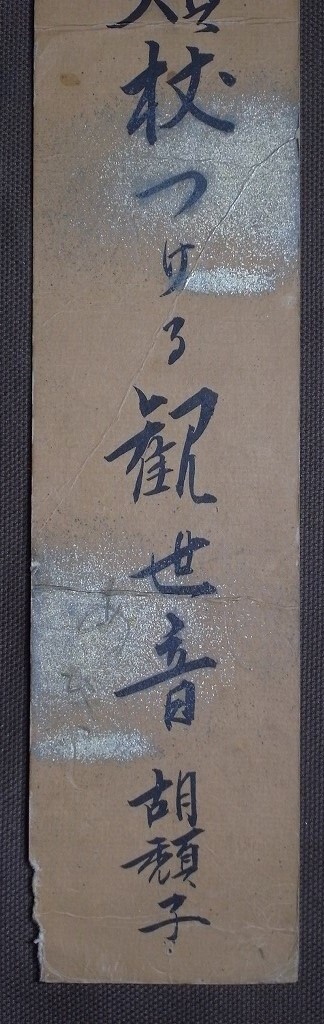 杖つける観世音
胡頽子